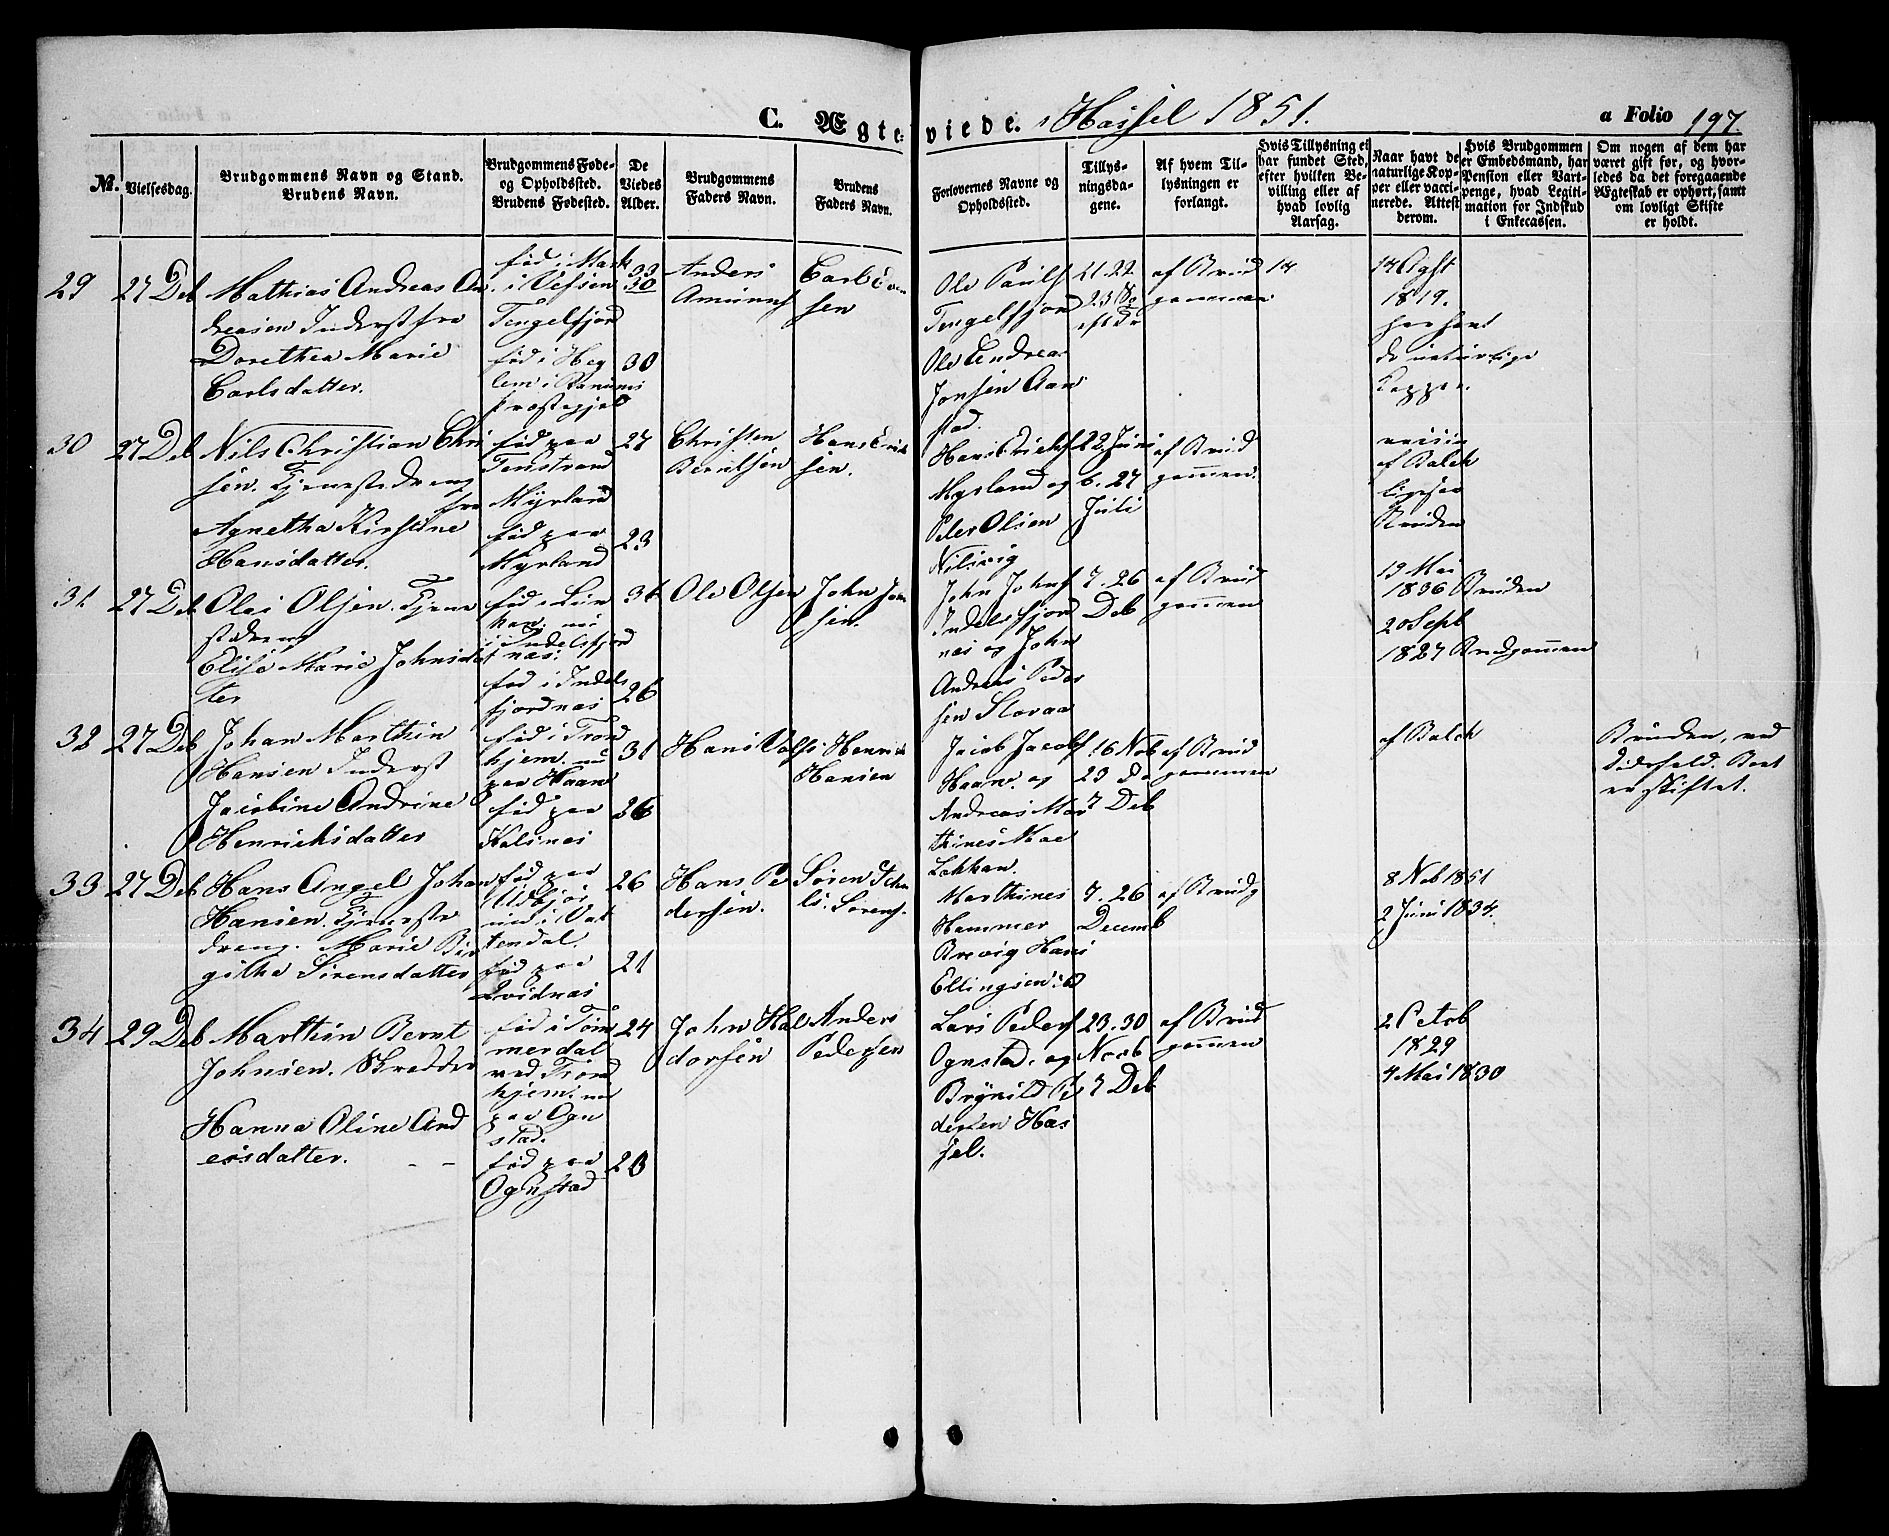 C. Ægteviede. i Hassel 1851. a Folio 197.
No. Vielsesdag. Brudgommens Navn og Stand. Brudens Navn. Brudgommens Føde- og Opholdssted. Brudens Fødested. De Viedes Alder. Brudgommens Faders Navn. Brudens Faders Navn. Forlovernes Navne og Opholdssted. Tillysningsdagene. Af hvem Tillysningen er forlangt. Hvis Tillysning ei har fundet Sted, efter hvilken Bevilling eller af hvad lovlig Aarsag. Naar havt de naturlige Kopper eller vaccinerede. Attest derom. Hvis Brudgommen er Embedsmand, har Pension eller Vartpenge, hvad Legitimation for Indskud i Enkecassen. Om nogen af dem har været gift før, og hvorledes da det foregaaende Ægteskab er ophørt, samt om lovligt Skifte er holdt.
29
27 Deb
Mathias Andreas An
dreasen Inderst fra
Dorethea Marie
Carlsdatter.
i Vefsen
Tengelfjord
fød i Heg
præstegjel
33
30
30
Anders
Carl
sen
Ole Pauls
Tengelfjord
Ole Andreas
Jonsen Aan
stad.
21. 22
af Brud
gommen
14
14 Agst
1819.
har havt
de naturlige
Kopper.
30
27 Deb
Nils Christian Chri
sen. Tjenestedreng
fra
Agnetha Kirstine
Hansdatter.
fød paa
Tenstrand
Myrland
fød paa
Myrland
27
23
Christen
Berntsen
Hans Erik
sen.
Hans Eriks
Myrland og
Peder Olsen
Nilsvig
22. Juni
6. 27
Juli
af Brud
gommen.
af Balch
ligesaa
Bruden
31
27 Deb
Olai Olsen. Tjene
stedreng
Elise Marie Johnsdat
ter
i Indelsfjord
næs.
fød i Indels
fjordnæs
31
26
Ole Olsen
John Jon
sen.
John Johns
Indelsfjord
næs og John
Andreas Peder
sen Slovaa
7. 26
Deb
af Brud
gommen
19 Mai
1836 Bruden
20 Sept
1827 Brudgommen
32
27 Deb
Johan Marthin
Hansen Inderst
Jacobine Andrine
Henriksdatter
fød i Trond
hjem. nu
paa Haan
fød paa
Kalsnæs
31
26
Hans Vols
Henrik
Hansen
Jacob Jacobs
Haane. og
Andreas Mar
thines
Lokkan.
16 Nob
23 Do
7 Deb
af Brud
gommen
af Balch
Bruden, ved
Dødsfald. Boet
er skiftet.
33
27 Deb
Hans Angel Johan
Hansen. Tjeneste
dreng. Marie Bir
githe Sørensdatter
fød paa
Uldbjør
nu i Vat
tendal.
fød paa
Qvidnæs
26
21
Hans Pe
dersen.
Søren
Sørens.
Marthines
Hammer
Brevig Hans
Ellingsen
7. 26
Decemb
af Brudg
gommen
8 Nob 1851
2 Juni 1834.
34
29 Deb
Marthin Bernt
Johnsen. Skredder
Hanna Oline And
ersdatter.
fød i Tøm
merdal
ved Trond
hjem. nu
paa Ogn
stad.
fød paa
Ognstad
24
23
John Hal
dorsen
Anders
Pedersen
Lars Peders
Ognstad. og
Brynild Pe
dersen Has
sel.
23. 30
Novb
7 Deb
af Brud
gommen
1829
4 Mai 1830